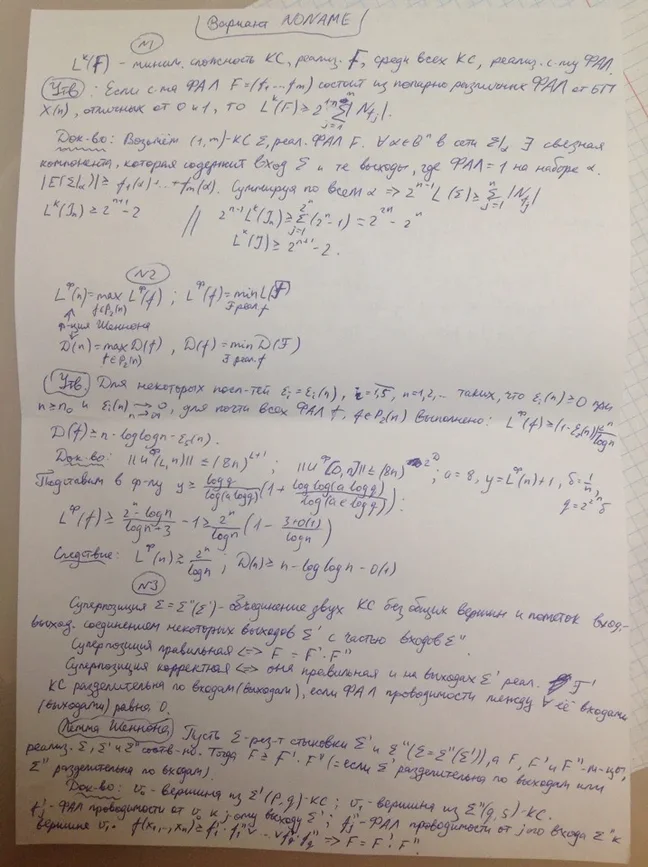 Вариант NONAME
N1
L^k(F) - миним. сложность КС, реализ. F, среди всех КС, реализ. с-му ФАЛ.
Утв: Если с-ма ФАЛ F=(f₁,...fₘ) состоит из попарно различных ФАЛ от БП
X(n), отличных от 0 и 1, то L^k(F) ≥ 2^{1-n} Σ_{j=1}^{m} |N_{fj}|.
Док-во: Возьмём (1,m)-КС Σ, реал. ФАЛ F. ∀α∈Bⁿ в сети Σ|α ∃ связная
компонента, которая содержит вход Σ и те выходы, где ФАЛ=1 на наборе α.
|E(Σ|α)| ≥ f₁(α)+...+fₘ(α). Суммируя по всем α ⇒ 2^{n-1} L(Σ) ≥ Σ_{j=1}^{n} |N_{fj}|
L^k(Jₙ) ≥ 2^{n+1}-2 // 2^{n-1} L^k(Jₙ) ≥ Σ_{j=1}^{2ⁿ} (2ⁿ-1) = 2^{2n} - 2ⁿ
L^k(J) ≥ 2^{n+1}-2.
N2
L^Ф(n) = max_{f∈P₂(n)} L^Ф(f) ; L^Ф(f) = min_{F реал. f} L(F)
ф-ция Шеннона
D(n) = max_{f∈P₂(n)} D(f) , D(f) = min_{F реал. f} D(F)
Утв. Для некоторых посл-тей εᵢ=εᵢ(n), i=1,5, n=1,2,... таких, что εᵢ(n) ≥ 0 при
n≥n₀ и εᵢ(n) →_{n→∞} 0, для почти всех ФАЛ f, f∈P₂(n) выполнено: L^Ф(f) ≥ (1-ε₁(n)) 2ⁿ/log n
D(f) ≥ n - log log n - ε₂(n).
Док-во: ||U^Ф(L,n)|| ≤ (8n)^{L+1} ; ||U^Ф[D,n]|| ≤ (8n)^{2^D} ; a=8, y=L^Ф(n)+1, δ=1/n,
Подставим в ф-лу y ≥ log g/log(a log g) (1 + log log(a log g)/log(a e log g)) : g=2^{2ⁿ}δ
L^Ф(f) ≥ (2ⁿ - log n)/(log n + 3) - 1 ≥ 2ⁿ/log n (1 - (3+o(1))/log n)
Следствие: L^Ф(n) ≳ 2ⁿ/log n ; D(n) ≥ n - log log n - o(1)
N3
Суперпозиция Σ=Σ''(Σ') - объединение двух КС без общих вершин и пометок вход-
выход. соединением некоторых выходов Σ' с частью входов Σ''.
Суперпозиция правильная ⇔ F = F'·F''
Суперпозиция корректная ⇔ она правильная и на выходах Σ' реал. F'
КС разделительна по входам (выходам), если ФАЛ проводимости между ∀ её входами
(выходами) равна 0.
Лемма Шеннона. Пусть Σ - рез-т стыковки Σ' и Σ'' (Σ=Σ''(Σ')), а F, F' и F'' - м-цы,
реализ. Σ, Σ' и Σ'' соотв-но. Тогда F ≥ F'·F'' (= если Σ' разделительна по выходам или
Σ'' разделительна по входам).
Док-во: v₀ - вершина из Σ' (p,q)-КС ; v₁ - вершина из Σ'' (q,s)-КС.
f'ⱼ - ФАЛ проводимости от v₀ к j-ому выходу Σ' ; f''ⱼ - ФАЛ проводимости от j-ого входа Σ'' к
вершине v₁. f(x₁,...,xₙ) ≥ f'₁·f''₁ ∨...∨ f'_q f''_q ⇒ F = F'·F''.